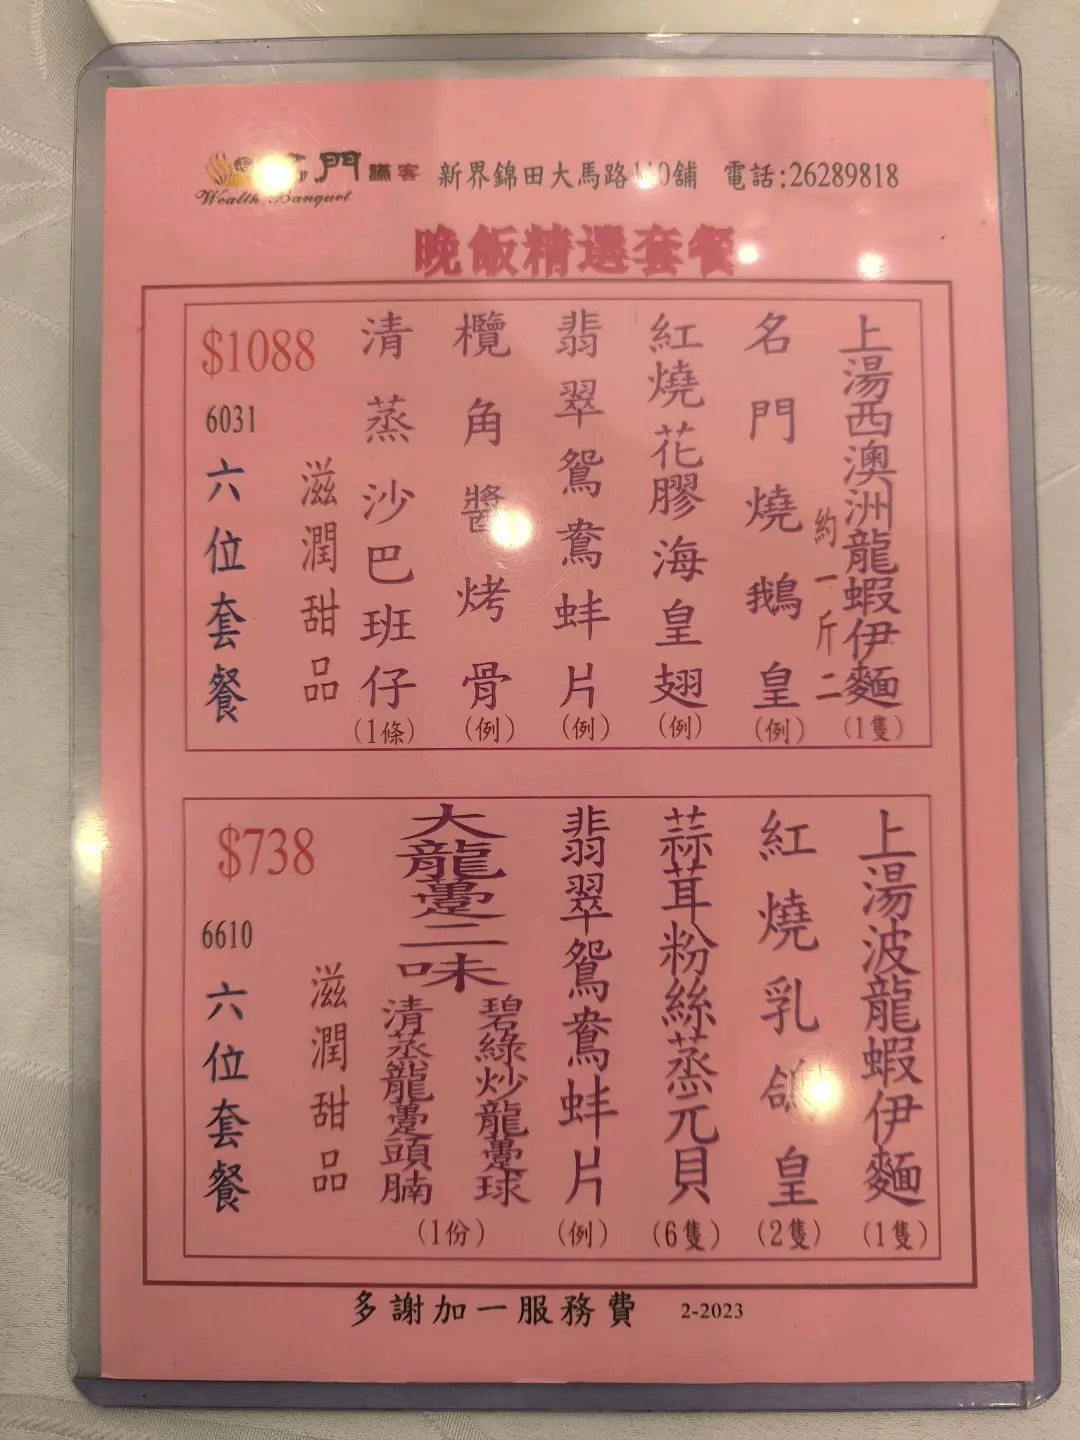 門 讌客 新界錦田大馬路110舖 電話:26289818
Wealth Banquet
晚飯精選套餐
上湯西澳洲龍蝦伊麵(1隻)
約一斤二
名門燒鵝皇(例)
紅燒花膠海皇翅(例)
翡翠鴛鴦蚌片(例)
欖角醬烤骨(例)
清蒸沙巴班仔(1條)
滋潤甜品
$1088
6031
六位套餐
上湯波龍蝦伊麵(1隻)
紅燒乳鴿皇(2隻)
蒜茸粉絲蒸元貝(6隻)
翡翠鴛鴦蚌片(例)
大龍躉二味
碧綠炒龍躉球
清蒸龍躉頭腩
(1份)
滋潤甜品
$738
6610
六位套餐
多謝加一服務費 2-2023